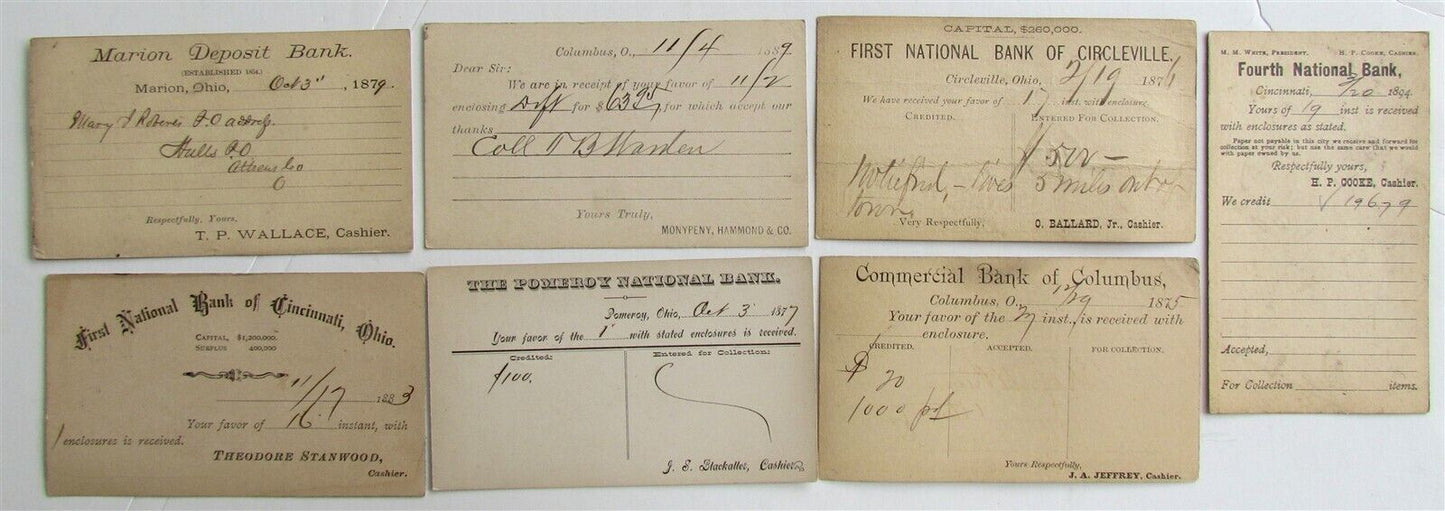 Marion Deposit Bank.
(ESTABLISHED 1854.)
Marion, Ohio, Oct 3" , 1879.
Mary S Roberts P.O address
Hulls P.O
Athens Co
O
Respectfully, Yours,
T. P. WALLACE, Cashier.
Columbus, O., 11/4 1889
Dear Sir:
We are in receipt of your favor of 11/2
enclosing Dft for $63 for which accept our
thanks
Coll T B Warden
Yours Truly,
MONYPENY, HAMMOND & CO.
CAPITAL, $260,000.
FIRST NATIONAL BANK OF CIRCLEVILLE,
Circleville, Ohio, 2/19 187
We have received your favor of 17 inst. with enclosure.
CREDITED. ENTERED FOR COLLECTION.
$500-
Notified, - lives 5 miles out of
town.
Very Respectfully, O. BALLARD, Jr., Cashier.
M. M. WHITE, PRESIDENT. H. P. COOKE, CASHIER.
Fourth National Bank,
Cincinnati, 2/20 1894.
Yours of 19 inst is received
with enclosures as stated.
Paper not payable in this city we receive and forward for
collection at your risk; but use the same care that we would
with paper owned by us.
Respectfully yours,
H. P. COOKE, Cashier.
We credit 19679
Accepted,
For Collection items.
First National Bank of Cincinnati, Ohio.
CAPITAL, $1,200,000.
SURPLUS 400,000
11/17 1883
Your favor of 16 instant, with
1 enclosures is received.
THEODORE STANWOOD,
Cashier.
THE POMEROY NATIONAL BANK.
Pomeroy, Ohio, Oct 3 1877
Your favor of the 1" with stated enclosures is received.
Credited: Entered for Collection:
$100.
J. S. Blackaller, Cashier
Commercial Bank of Columbus,
Columbus, O., 12/29 1875
Your favor of the 27 inst., is received with
enclosure.
CREDITED. ACCEPTED. FOR COLLECTION.
$ 20
1000 pd
Yours Respectfully,
J. A. JEFFREY, Cashier.